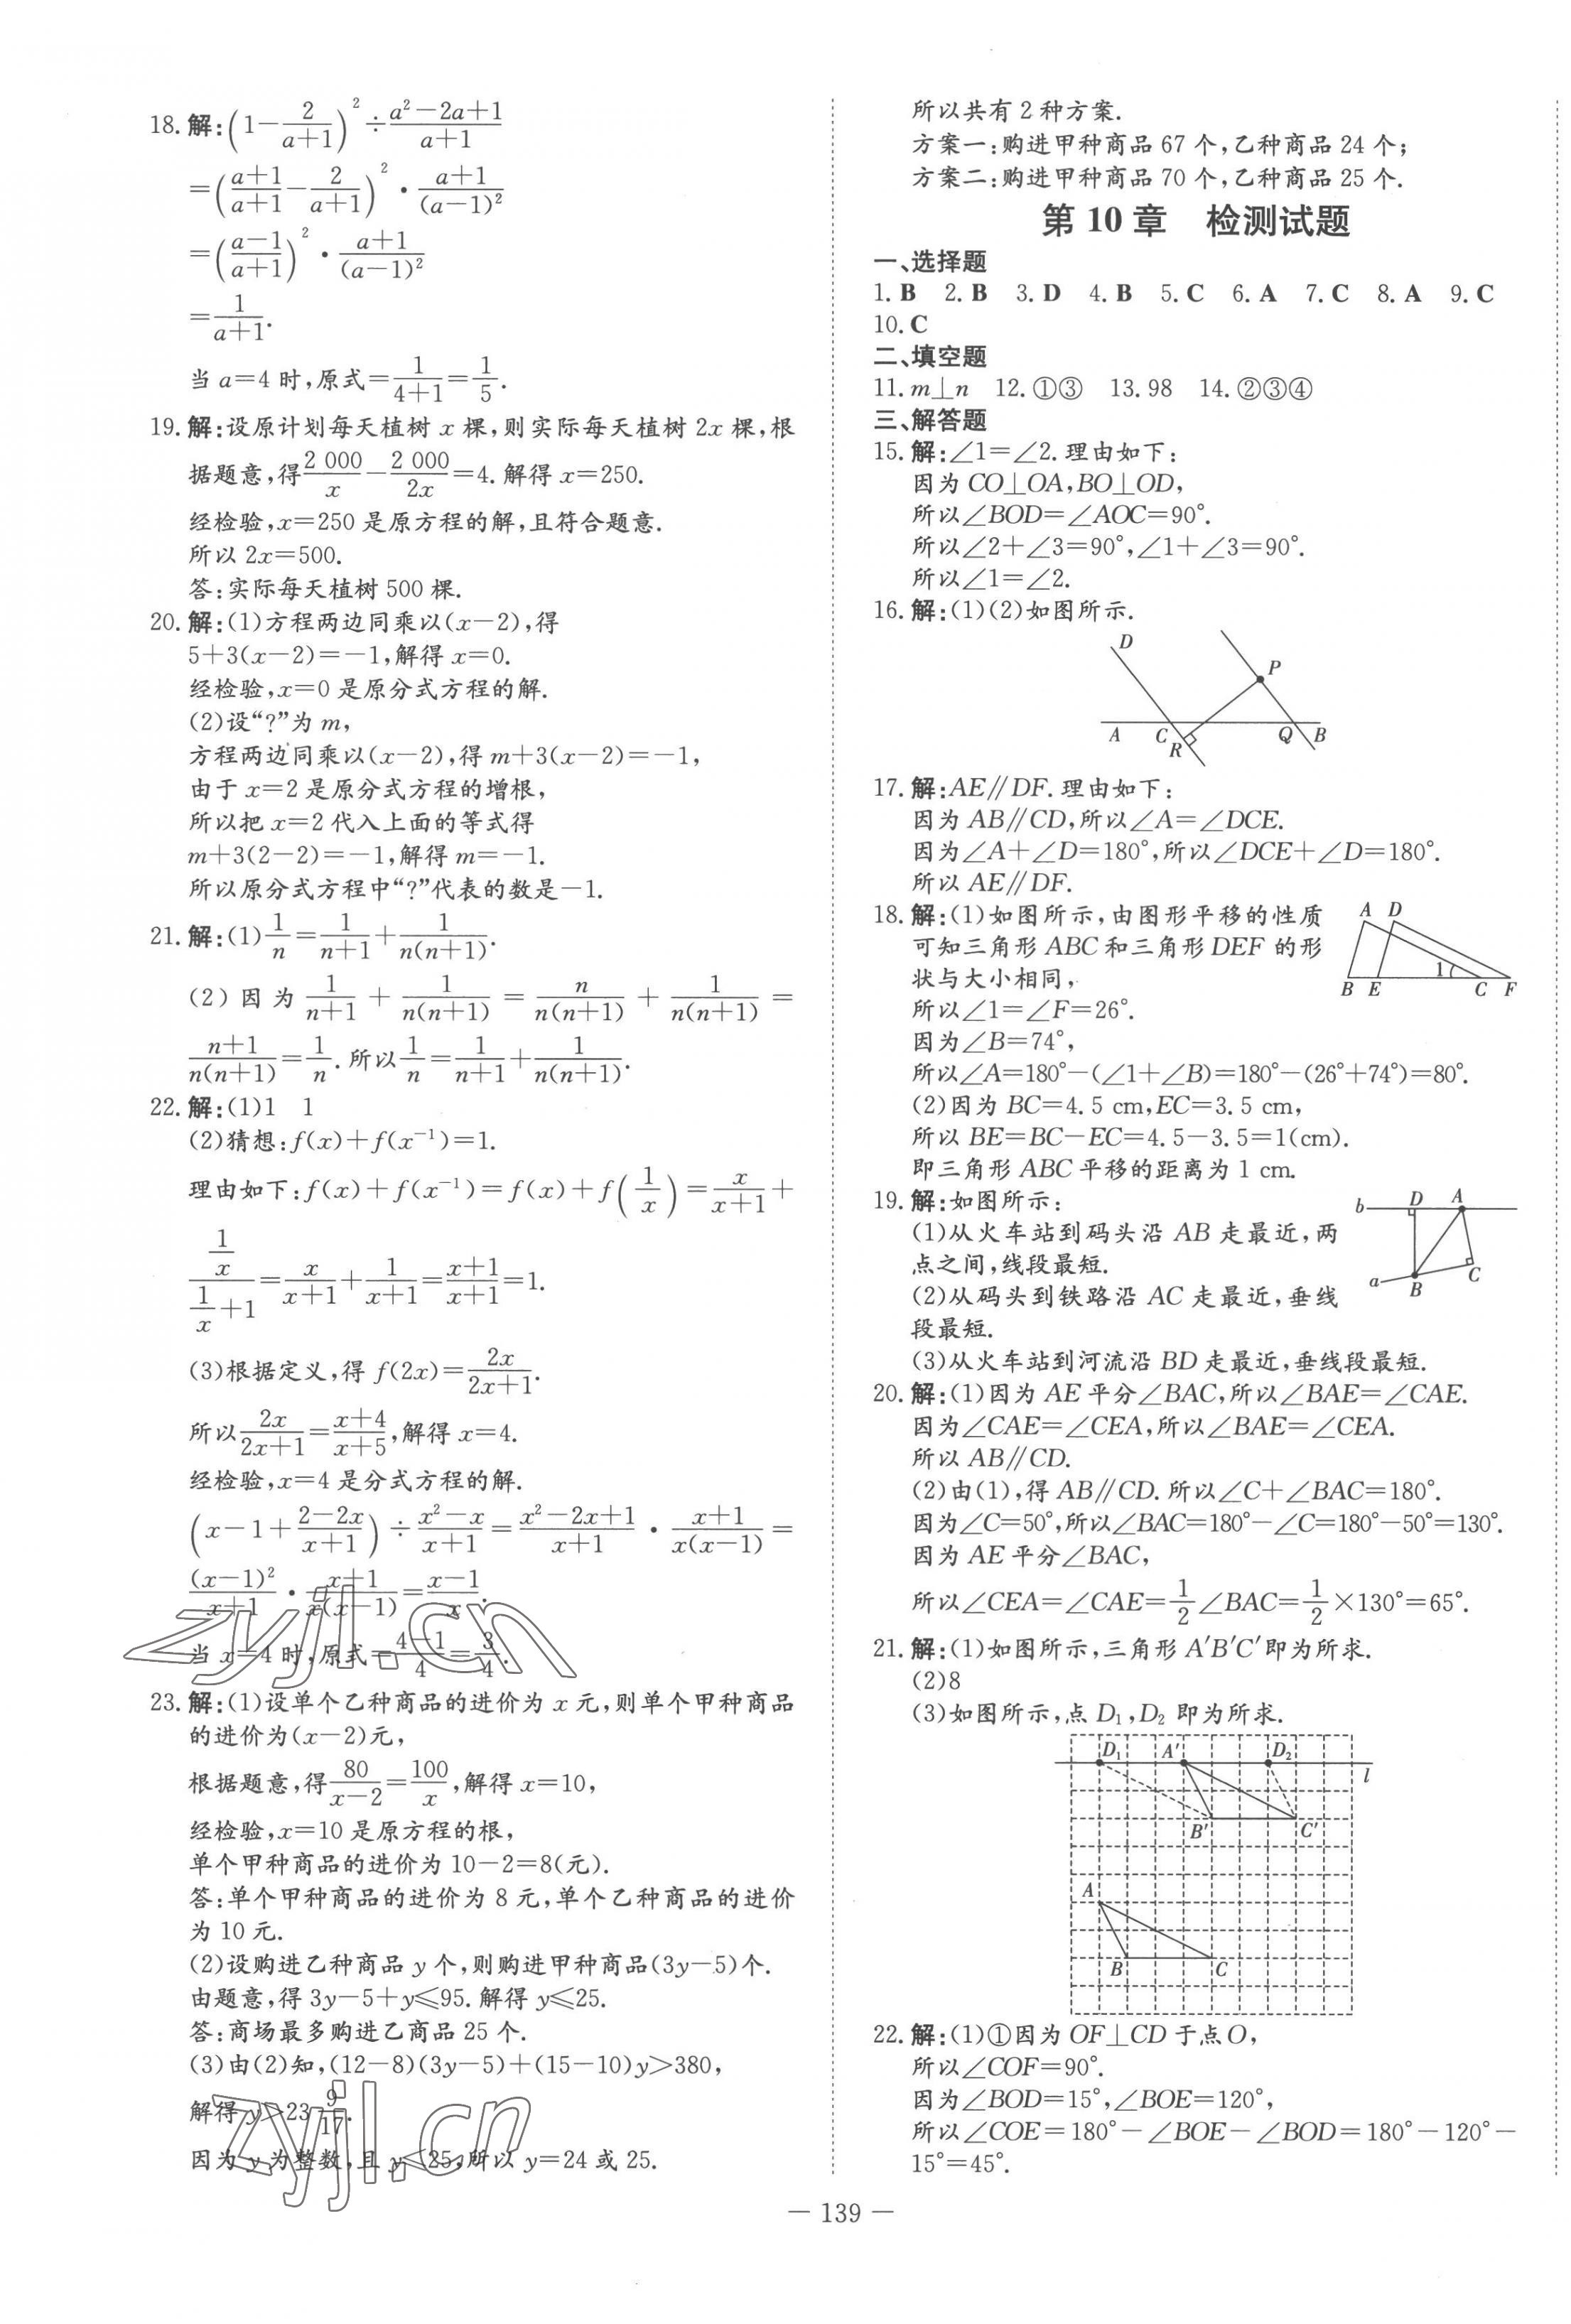 18. 解:(1-2/(a+1))²÷(a²-2a+1)/(a+1)
=((a+1)/(a+1)-2/(a+1))²·(a+1)/(a-1)²
=((a-1)/(a+1))²·(a+1)/(a-1)²
=1/(a+1).
当 a=4 时,原式=1/(4+1)=1/5.
19. 解:设原计划每天植树 x 棵,则实际每天植树 2x 棵,根
据题意,得2 000/x-2 000/2x=4. 解得 x=250.
经检验,x=250 是原方程的解,且符合题意.
所以 2x=500.
答:实际每天植树 500 棵.
20. 解:(1)方程两边同乘以(x-2),得
5+3(x-2)=-1,解得 x=0.
经检验,x=0 是原分式方程的解.
(2)设“?”为 m,
方程两边同乘以(x-2),得 m+3(x-2)=-1,
由于 x=2 是原分式方程的增根,
所以把 x=2 代入上面的等式得
m+3(2-2)=-1,解得 m=-1.
所以原分式方程中“?”代表的数是-1.
21. 解:(1)1/n=1/(n+1)+1/(n(n+1)).
(2)因为 1/(n+1)+1/(n(n+1))=n/(n(n+1))+1/(n(n+1))=
(n+1)/(n(n+1))=1/n. 所以1/n=1/(n+1)+1/(n(n+1)).
22. 解:(1)1 1
(2)猜想:f(x)+f(x⁻¹)=1.
理由如下:f(x)+f(x⁻¹)=f(x)+f(1/x)=x/(x+1)+
(1/x)/(1/x+1)=x/(x+1)+1/(x+1)=(x+1)/(x+1)=1.
(3)根据定义,得 f(2x)=2x/(2x+1).
所以2x/(2x+1)=(x+4)/(x+5),解得 x=4.
经检验,x=4 是分式方程的解.
(x-1+(2-2x)/(x+1))÷(x²-x)/(x+1)=(x²-2x+1)/(x+1)·(x+1)/(x(x-1))=
(x-1)²/(x+1)·(x+1)/(x(x-1))=(x-1)/x.
当 x=4 时,原式=(4-1)/4=3/4.
zyjl.cn
23. 解:(1)设单个乙种商品的进价为 x 元,则单个甲种商品
的进价为(x-2)元,
根据题意,得80/(x-2)=100/x,解得 x=10,
经检验,x=10 是原方程的根,
单个甲种商品的进价为 10-2=8(元).
答:单个甲种商品的进价为 8 元,单个乙种商品的进价
为 10 元.
(2)设购进乙种商品 y 个,则购进甲种商品(3y-5)个.
由题意,得 3y-5+y≤95. 解得 y≤25.
答:商场最多购进乙商品 25 个.
(3)由(2)知,(12-8)(3y-5)+(15-10)y>380,
解得 y>23 9/17.
因为 y 为整数,且 y≤25,所以 y=24 或 25.
zyjl.cn
所以共有 2 种方案.
方案一:购进甲种商品 67 个,乙种商品 24 个;
方案二:购进甲种商品 70 个,乙种商品 25 个.
第 10 章 检测试题
一、选择题
1. B 2. B 3. D 4. B 5. C 6. A 7. C 8. A 9. C
10. C
二、填空题
11. m⊥n 12. ①③ 13. 98 14. ②③④
三、解答题
15. 解:∠1=∠2. 理由如下:
因为 CO⊥OA,BO⊥OD,
所以∠BOD=∠AOC=90°.
所以∠2+∠3=90°,∠1+∠3=90°.
所以∠1=∠2.
16. 解:(1)(2)如图所示.
D
P
A C R Q B
17. 解:AE∥DF. 理由如下:
因为 AB∥CD,所以∠A=∠DCE.
因为∠A+∠D=180°,所以∠DCE+∠D=180°.
所以 AE∥DF.
18. 解:(1)如图所示,由图形平移的性质
可知三角形 ABC 和三角形 DEF 的形
状与大小相同,
所以∠1=∠F=26°.
因为∠B=74°,
A D
1
B E C F
所以∠A=180°-(∠1+∠B)=180°-(26°+74°)=80°.
(2)因为 BC=4.5 cm,EC=3.5 cm,
所以 BE=BC-EC=4.5-3.5=1(cm).
即三角形 ABC 平移的距离为 1 cm.
19. 解:如图所示:
(1)从火车站到码头沿 AB 走最近,两
点之间,线段最短.
(2)从码头到铁路沿 AC 走最近,垂线
段最短.
b D A
a B C
(3)从火车站到河流沿 BD 走最近,垂线段最短.
20. 解:(1)因为 AE 平分∠BAC,所以∠BAE=∠CAE.
因为∠CAE=∠CEA,所以∠BAE=∠CEA.
所以 AB∥CD.
(2)由(1),得 AB∥CD. 所以∠C+∠BAC=180°.
因为∠C=50°,所以∠BAC=180°-∠C=180°-50°=130°.
因为 AE 平分∠BAC,
所以∠CEA=∠CAE=1/2∠BAC=1/2×130°=65°.
21. 解:(1)如图所示,三角形 A′B′C′即为所求.
(2)8
(3)如图所示,点 D₁,D₂ 即为所求.
D₁ A′ D₂
l
B′ C′
A
B C
22. 解:(1)①因为 OF⊥CD 于点 O,
所以∠COF=90°.
因为∠BOD=15°,∠BOE=120°,
所以∠COE=180°-∠BOE-∠BOD=180°-120°-
15°=45°.
— 139 —